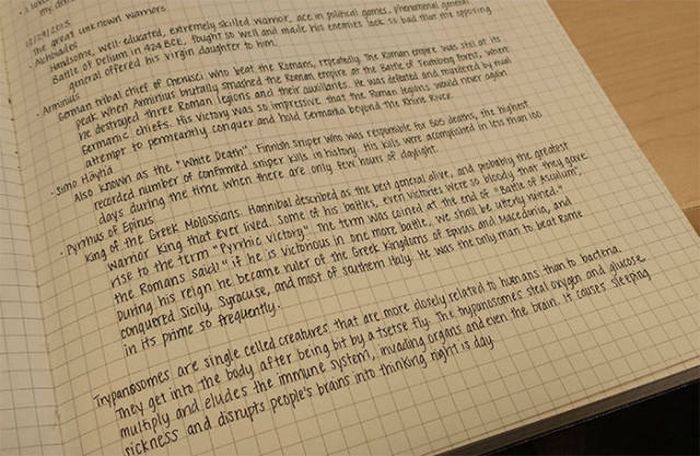 my
12/29/2015
The great unknown warriors.
· Alcibiades
Handsome, well-educated, extremely skilled warrior, ace in political games, phenomenal general
Battle of Delium in 424 BCE, fought so well and made his enemies look so bad that the opposing
general offered his virgin daughter to him.
· Arminius
German tribal chief of Cherusci who beat the Romans, repeatedly. The Roman empire was still at its
peak when Arminius brutally smashed the Roman empire at the Battle of Teutoburg Forest, where
he destroyed three Roman legions and their auxiliaries. He was defeated and murdered by rival
Germanic chiefs. His victory was so impressive that the Roman legions would never again
attempt to permeantly conquer and hold Germania beyond the Rhine River.
· Simo Häyhä
Also known as the "White Death". Finnish sniper who was responsible for 505 deaths, the highest
recorded number of confirmed sniper kills in history. His kills were acomplished in less than 100
days during the time when there are only few hours of daylight.
· Pyrrhus of Epirus
King of the Greek Molossians. Hannibal described as the best general alive, and probably the greatest
warrior king that ever lived. Some of his battles, even victories were so bloody that they gave
rise to the term "Pyrrhic victory". The term was coined at the end of "Battle of Asculum",
the Romans said: "if he is victorious in one more battle, we shall be utterly ruined."
During his reign he became ruler of the Greek Kingdoms of Epirus and Macedonia, and
conquered Sicily, Syracuse, and most of southern Italy. He was the only man to beat Rome
in its prime so frequently.
Trypanosomes are single celled creatures that are more closely related to humans than to bacteria.
They get into the body after being bit by a tsetse fly. The trypanosomes steal oxygen and glucose
multiply and eludes the immune system, invading organs and even the brain. It causes sleeping
sickness and disrupts people's brains into thinking night is day.